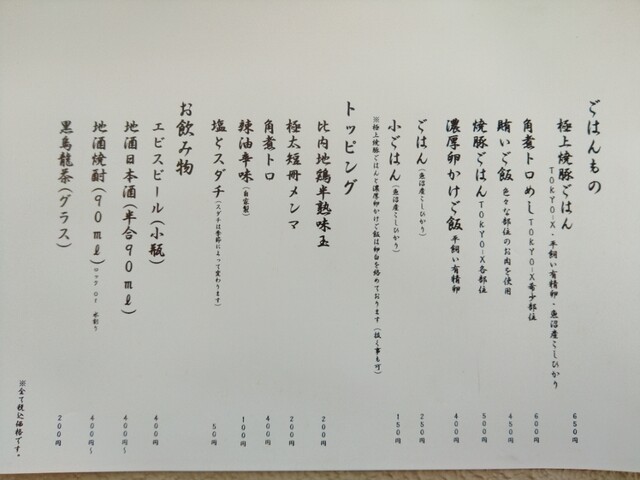 ごはんもの
極上焼豚ごはん TOKYO-X・平飼い有精卵・魚沼産こしひかり 650円
角煮トロめし TOKYO-X希少部位 600円
賄いご飯 色々な部位のお肉を使用 450円
焼豚ごはん TOKYO-X各部位 500円
濃厚卵かけご飯 平飼い有精卵 400円
ごはん(魚沼産こしひかり) 250円
小ごはん(魚沼産こしひかり) 150円
※極上焼豚ごはんと濃厚卵かけご飯は卵白を絡めております(抜く事も可)
トッピング
比内地鶏半熟味玉 200円
極太短冊メンマ 200円
角煮トロ 400円
辣油辛味(自家製) 100円
塩とスダチ(スダチは季節によって変わります) 50円
お飲み物
エビスビール(小瓶) 400円
地酒日本酒(半合90ml) 400円~
地酒焼酎(90ml)ロック or 水割り 400円~
黒烏龍茶(グラス) 200円
※全て税込価格です。